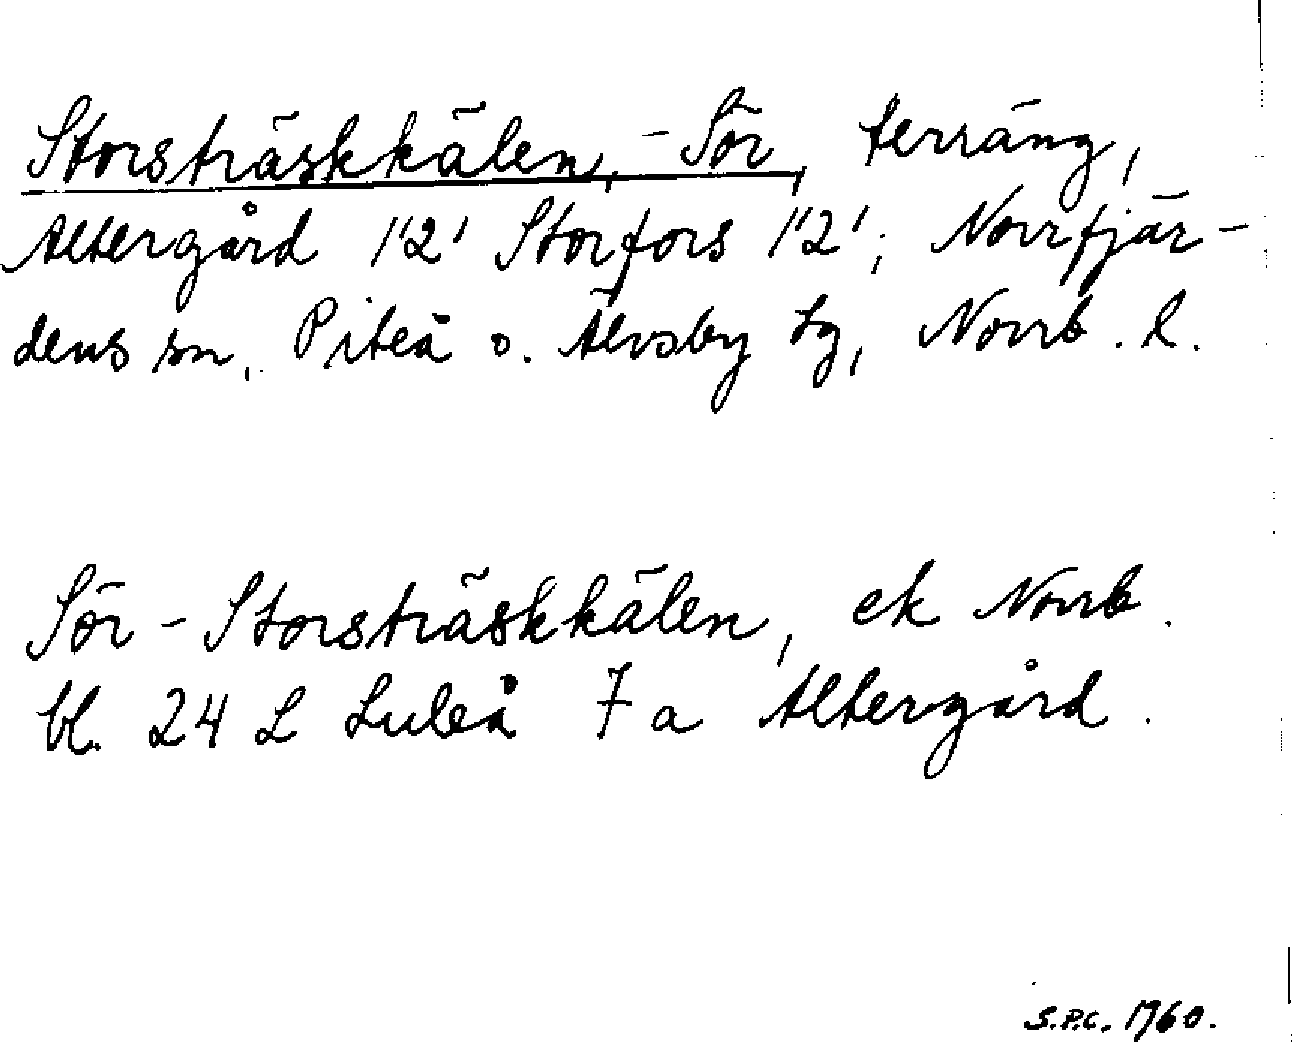 Storsträskkälen, -Sör, terräng,
Altergård 1'2' Storfors 1'2'; Norrfjär-
dens sn, Piteå o. Älvsby tg, Norrb. l.
Sör-Storsträskkälen, ek Norrb.
bl. 24 L Luleå 7 a Altergård.
S.P.C. 1960.